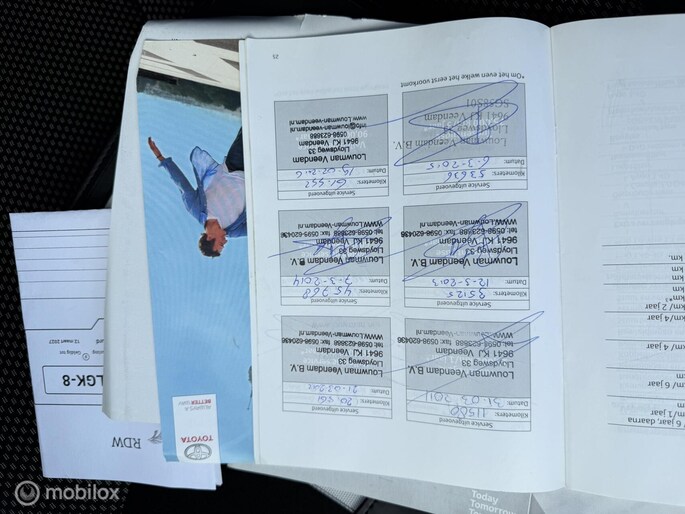 Service uitgevoerd
Kilometers: 11500
Datum: 31-03-2011
Louwman Veendam B.V.
Lloydsweg 33
9641 KJ Veendam
tel. 0598-623688 fax 0598-620436
www.Louwman-Veendam.nl
Service uitgevoerd
Kilometers:
Datum:
Louwman Veendam B.V.
Lloydsweg 33
9641 KJ Veendam
tel. 0598-623688 fax 0598-620436
www.Louwman-Veendam.nl
Service uitgevoerd
Kilometers: 35125
Datum: 12-3-2013
Louwman Veendam B.V.
Lloydsweg 33
9641 KJ Veendam
tel. 0598-623688 fax 0598-620436
www.Louwman-Veendam.nl
Service uitgevoerd
Kilometers: 45768
Datum: 7-3-2014
Louwman Veendam B.V.
Lloydsweg 33
9641 KJ Veendam
tel. 0598-623688 fax 0598-620436
www.Louwman-Veendam.nl
Service uitgevoerd
Kilometers: 53636
Datum: 6-3-2015
Louwman Veendam B.V.
Lloydsweg 33
9641 KJ Veendam
Service uitgevoerd
Kilometers: 61.552
Datum: 15-02-2016
Louwman Veendam
Lloydsweg 33
9641 KJ Veendam
0598-623688
info@louwman-veendam.nl
www.Louwman-Veendam.nl
*Om het even welke het eerst voorkomt
25
6 jaar, daarna
km/1 jaar
km/ 6 jaar
km
km/ 4 jaar
km/4 jaar
km/ 2 jaar
km*³
km
km
km.
TOYOTA
ALWAYS A
BETTER WAY
RDW
LGK-8
Geldig tot
Today
Tomorrow
Toyota
mobilox